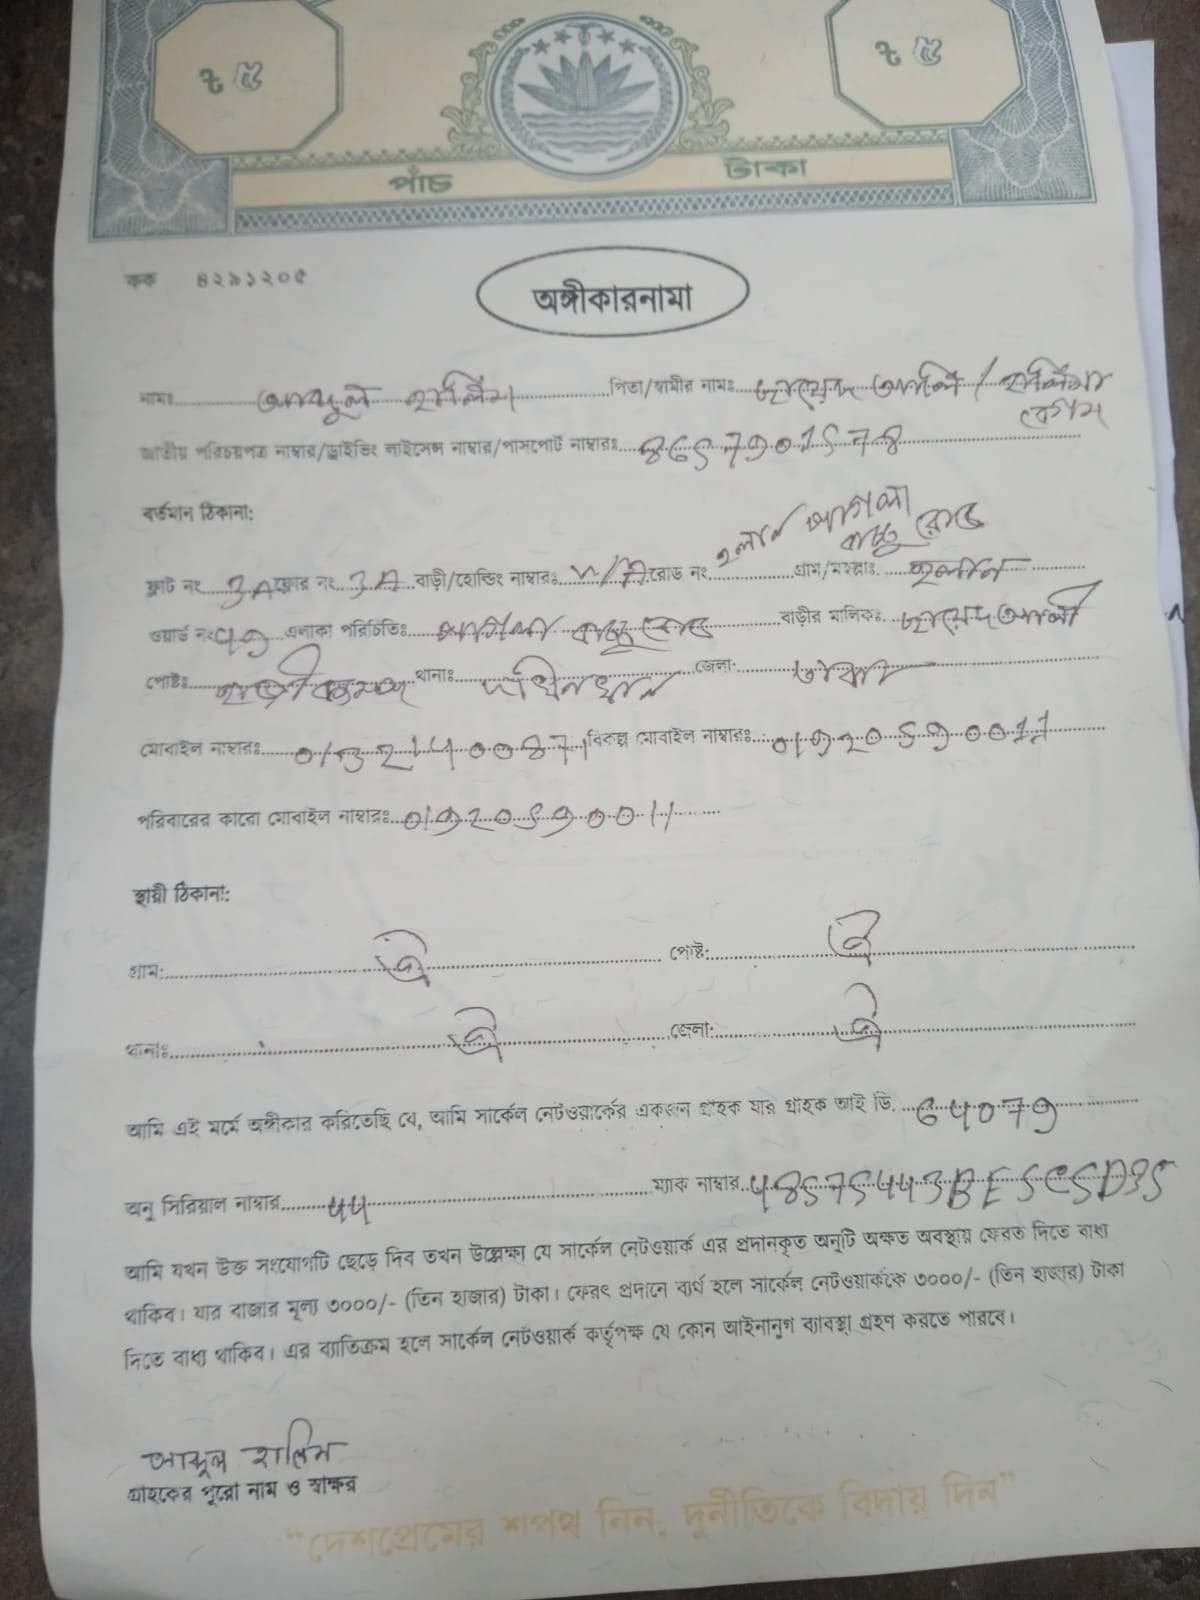 ৳ ৫ ৳ ৫
পাঁচ টাকা
কক ৪২৯১২০৫
অঙ্গীকারনামা
নামঃ আব্দুল হালিম পিতা/স্বামীর নামঃ জায়েদ আলি / হালিমা
বেগম
জাতীয় পরিচয়পত্র নাম্বার/ড্রাইভিং লাইসেন্স নাম্বার/পাসপোর্ট নাম্বারঃ
বর্তমান ঠিকানা:
হলান আগলা
বাচ্চু রোড
ফ্লাট নং 3A ফ্লোর নং 3A বাড়ী/হোল্ডিং নাম্বারঃ রোড নং গ্রাম/মহল্লাঃ হলান
ওয়ার্ড নং এলাকা পরিচিতিঃ আগলা বাচ্চু রোড বাড়ীর মালিকঃ জায়েদ আলী
পোষ্টঃ থানাঃ দক্ষিনখান জেলা: ঢাকা
মোবাইল নাম্বারঃ বিকল্প মোবাইল নাম্বারঃ 01920590011
পরিবারের কারো মোবাইল নাম্বারঃ 01920590011
স্থায়ী ঠিকানা:
গ্রাম: ঐ পোষ্ট: ঐ
থানাঃ ঐ জেলা: ঐ
আমি এই মর্মে অঙ্গীকার করিতেছি যে, আমি সার্কেল নেটওয়ার্কের একজন গ্রাহক যার গ্রাহক আই ডি. 64079
অনু সিরিয়াল নাম্বার 44 ম্যাক নাম্বার
আমি যখন উক্ত সংযোগটি ছেড়ে দিব তখন উল্লেক্ষা যে সার্কেল নেটওয়ার্ক এর প্রদানকৃত অনুটি অক্ষত অবস্থায় ফেরত দিতে বাধ্য
থাকিব। যার বাজার মূল্য ৩০০০/- (তিন হাজার) টাকা। ফেরৎ প্রদানে ব্যর্থ হলে সার্কেল নেটওয়ার্ককে ৩০০০/- (তিন হাজার) টাকা
দিতে বাধ্য থাকিব। এর ব্যাতিক্রম হলে সার্কেল নেটওয়ার্ক কর্তৃপক্ষ যে কোন আইনানুগ ব্যাবস্থা গ্রহণ করতে পারবে।
আব্দুল হালিম
গ্রাহকের পুরো নাম ও স্বাক্ষর
“দেশপ্রেমের শপথ নিন, দুর্নীতিকে বিদায় দিন”